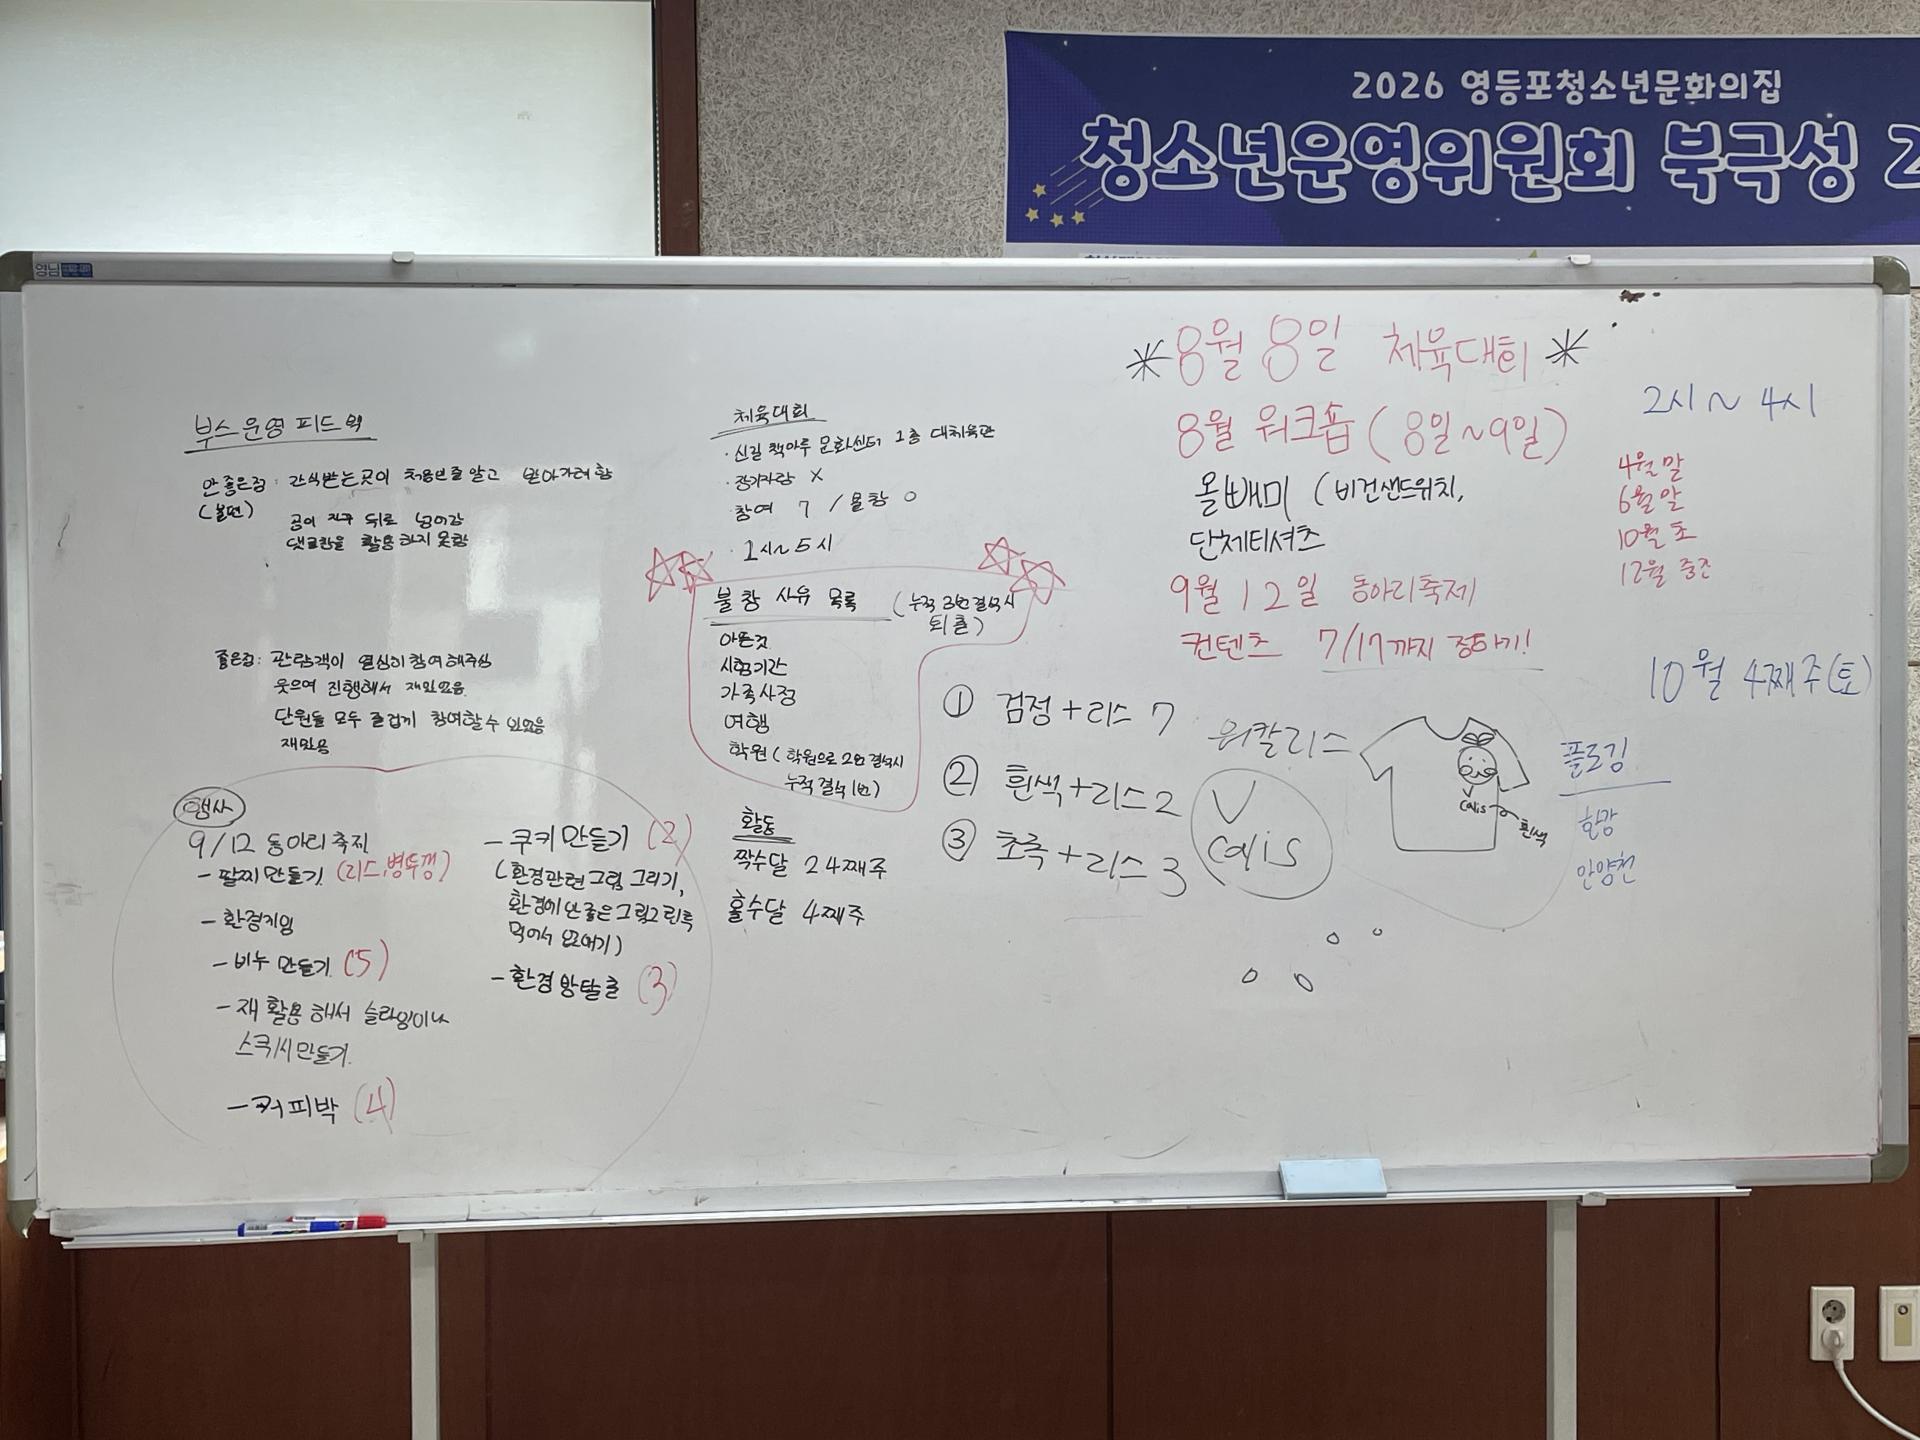 2026 영등포청소년문화의집
청소년운영위원회 북극성 2
영남
부스운영 피드백
안좋은점 : 간식받는곳이 처음인줄 알고 받아가려 함
(불편)
공이 자꾸 뒤로 넘어감
댓글판을 활용하지 못함
좋은점: 관람객이 열심히 참여해주심
웃으며 진행해서 재밌었음
단원들 모두 즐겁게 참여할 수 있었음
재밌음
행사
9/12 동아리축제
- 팔찌 만들기 (리스,병뚜껑)
- 환경게임
- 비누 만들기 (5)
- 재활용해서 슬라임이나
스퀴시만들기
- 커피박 (4)
- 쿠키만들기 (2)
(환경관련그림 그리기,
환경에 안좋은그림그린쿠키
먹어서 없애기)
- 환경 방탈출 (3)
체육대회
· 신길 책마루 문화센터 1층 대체육관
· 장기자랑 X
· 참여 7 / 불참 0
· 1시~5시
불참 사유 목록 (누적 3번 결석시
퇴출)
아픈것
시험기간
가족사정
여행
학원 (학원으로 2번 결석시
누적 결석 1번)
활동
짝수달 2 4째주
홀수달 4째주
* 8월 8일 체육대회 *
8월 워크숍 (8일~9일)
올빼미 (비건샌드위치,
단체티셔츠
9월 12일 동아리축제
컨텐츠 7/17까지 정하기!
① 검정+리스 7
② 흰색+리스 2
③ 초록+리스 3
위칼리스
V
calis
V
calis
흰색
2시~4시
4월 말
6월 말
10월 초
12월 중간
10월 4째주(토)
플로깅
한강
안양천